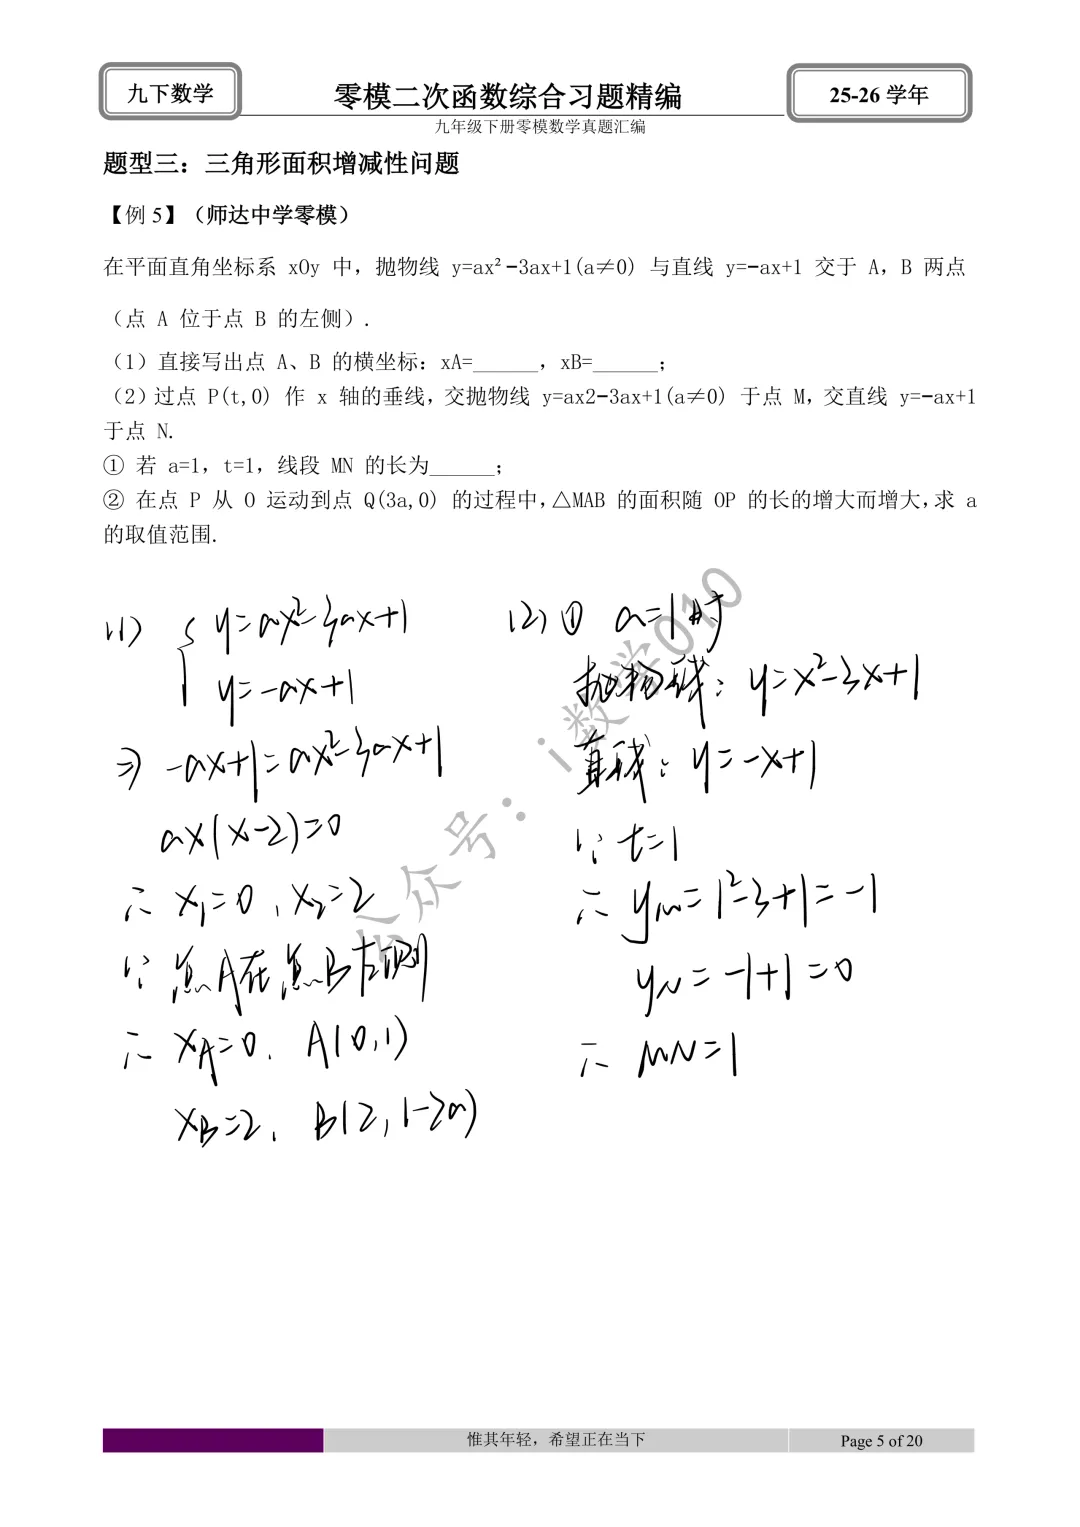 九下数学
零模二次函数综合习题精编
25-26 学年
九年级下册零模数学真题汇编
题型三：三角形面积增减性问题
【例 5】（师达中学零模）
在平面直角坐标系 xOy 中，抛物线 y=ax²-3ax+1(a≠0) 与直线 y=-ax+1 交于 A，B 两点
（点 A 位于点 B 的左侧）.
（1）直接写出点 A、B 的横坐标：xA=______，xB=______；
（2）过点 P(t,0) 作 x 轴的垂线，交抛物线 y=ax2-3ax+1(a≠0) 于点 M，交直线 y=-ax+1
于点 N.
① 若 a=1，t=1，线段 MN 的长为______；
② 在点 P 从 O 运动到点 Q(3a,0) 的过程中，△MAB 的面积随 OP 的长的增大而增大，求 a
的取值范围.
(1) { y=ax²-3ax+1
y=-ax+1
⇒ -ax+1=ax²-3ax+1
ax(x-2)=0
∴ x₁=0，x₂=2
∵ 点A在点B左侧
∴ xA=0，A(0,1)
xB=2，B(2,1-2a)
(2) ① a=1时
抛物线：y=x²-3x+1
直线：y=-x+1
∵ t=1
∴ yM=1²-3+1=-1
yN=-1+1=0
∴ MN=1
公众号：i数学010
惟其年轻，希望正在当下
Page 5 of 20